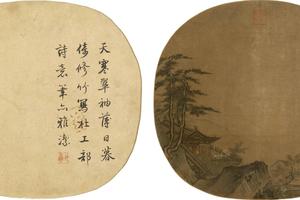 天寒翠袖薄日暮
倚修竹寫杜工部
詩意筆亦雅潔